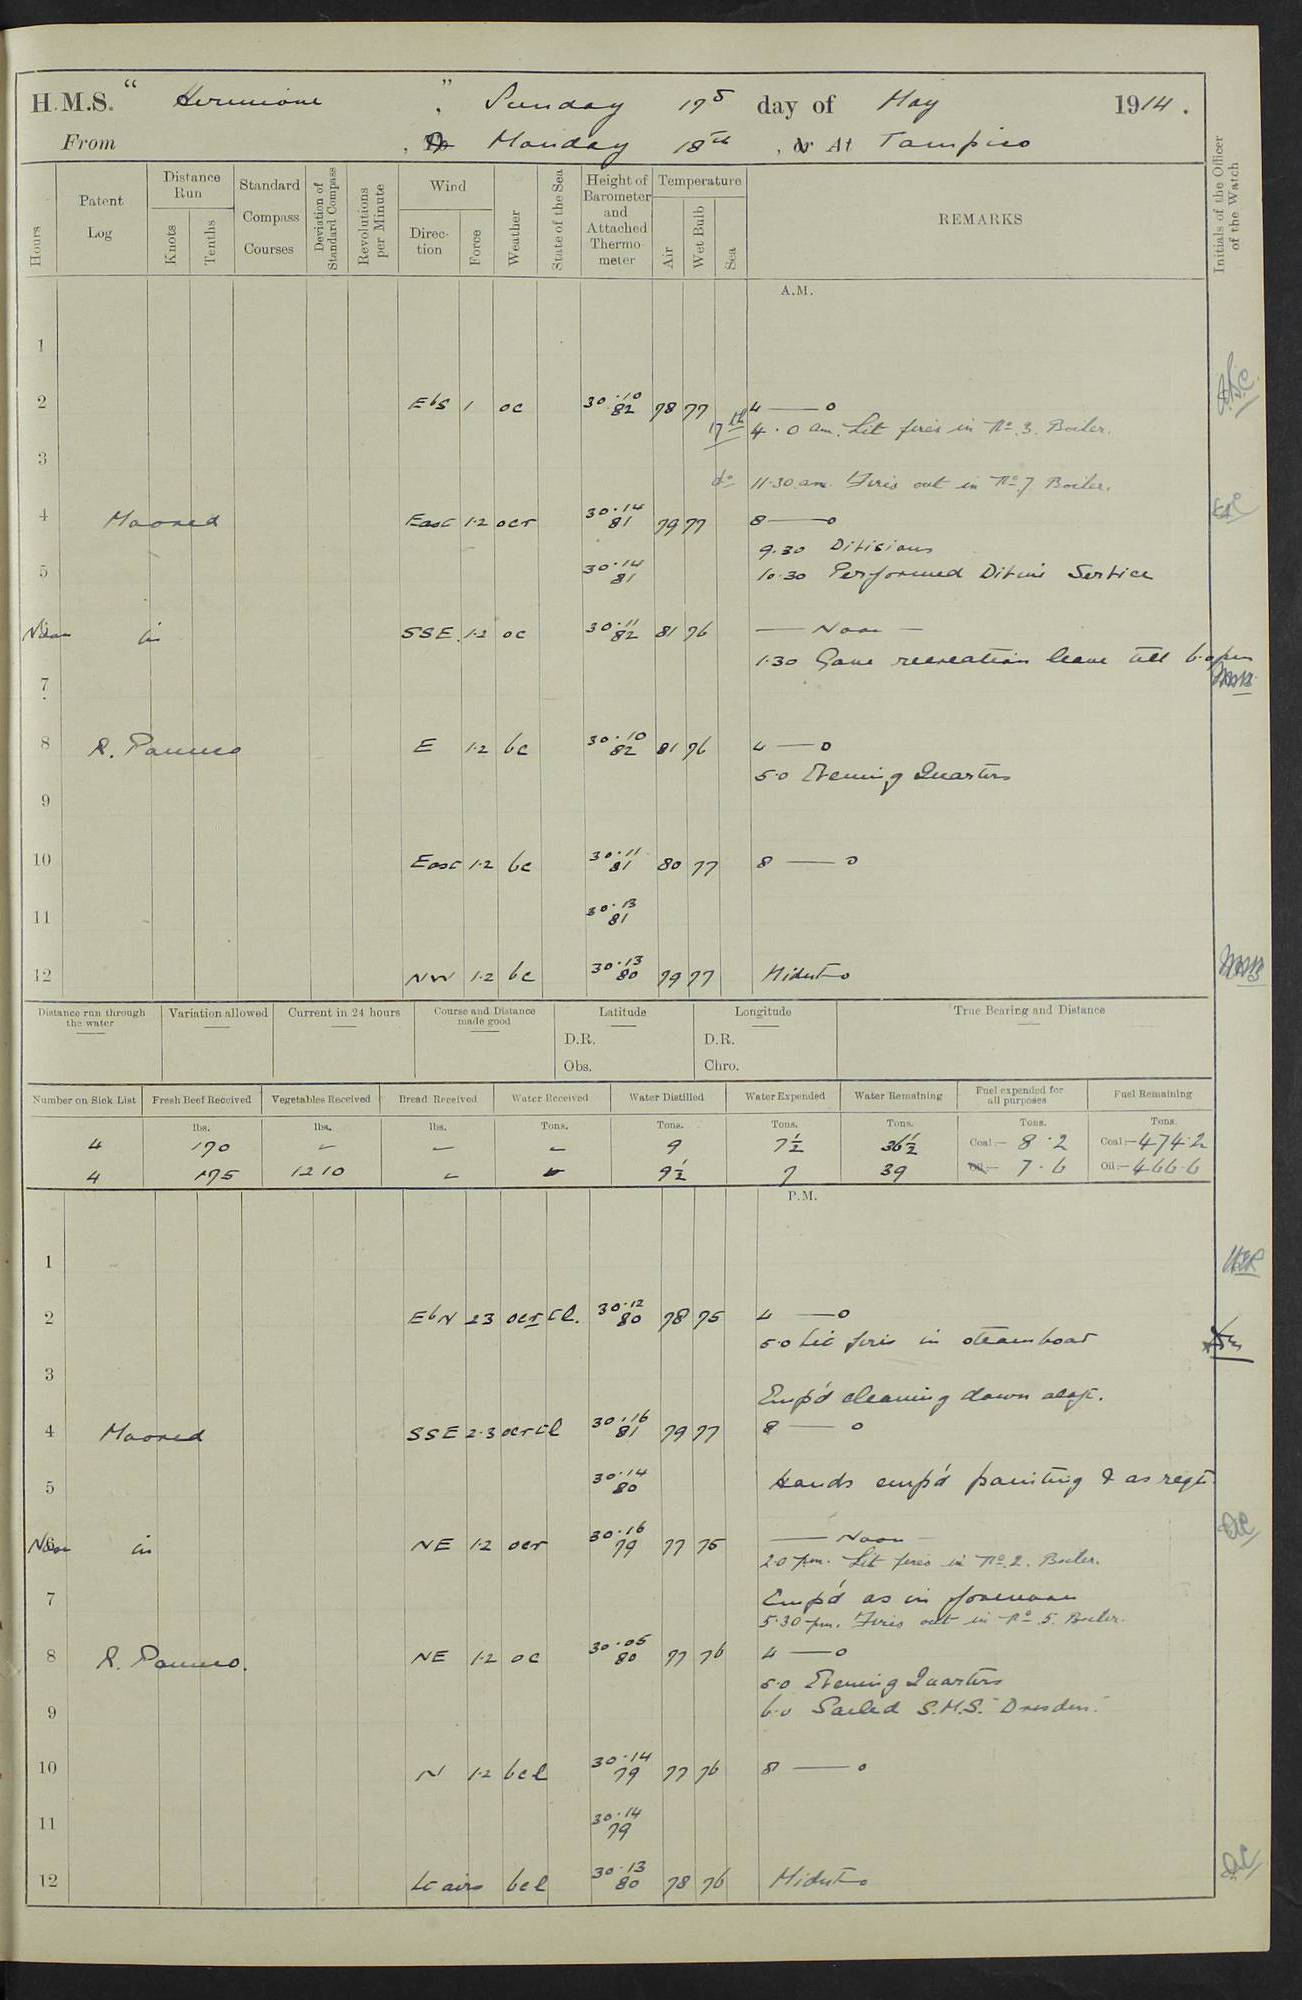 H.M.S. "Hermione", Sunday 17th day of May 1914.
From , To Monday 18th , or At Tampico
Hours
Patent Log
Distance Run
Knots
Tenths
Standard Compass Courses
Deviation of Standard Compass
Revolutions per Minute
Wind
Direction
Force
Weather
State of the Sea
Height of Barometer and Attached Thermometer
Temperature
Air
Wet Bulb
Sea
REMARKS
Initials of the Officer of the Watch
A.M.
1
2 EbS 1 oc 30.10 82 78 77 4 —— 0
17th 4.0 am. Lit fires in No. 3. Boiler.
3
do 11.30 am. Fires out in No 7 Boiler.
4 Moored East 1.2 ocr 30.14 81 79 77 8 —— 0
9.30 Divisions
5 30.14 81 10.30 Performed Divine Service
Noon in SSE 1.2 oc 30.11 82 81 76 —— Noon ——
1.30 Gave recreation leave till 6.0 pm
7
8 R. Panuco E 1.2 bc 30.10 82 81 76 4 —— 0
5.0 Evening Quarters
9
10 East 1.2 bc 30.11 81 80 77 8 —— 0
11 30.13 81
12 NW 1.2 bc 30.13 80 79 77 Midnt
Distance run through the water
Variation allowed
Current in 24 hours
Course and Distance made good
Latitude
D.R.
Obs.
Longitude
D.R.
Chro.
True Bearing and Distance
Number on Sick List
Fresh Beef Received
Vegetables Received
Bread Received
Water Received
Water Distilled
Water Expended
Water Remaining
Fuel expended for all purposes
Fuel Remaining
lbs. lbs. lbs. Tons. Tons. Tons. Tons. Tons. Tons.
4 170 – – – 9 7½ 36½ Coal:— 8.2 Coal:— 474.2
4 175 1210 – – 9½ 7 39 Oil:— 7.6 Oil:— 466.6
P.M.
1 HER
2 EbN 2.3 ocr cl. 30.12 80 78 75 4 —— 0
5.0 Lit fires in steamboat
3
Emp'd cleaning down aloft.
4 Moored SSE 2.3 ocr cl 30.16 81 79 77 8 —— 0
5 30.14 80 Hands emp'd painting & as reqt.
Noon in NE 1.2 ocr 30.16 79 77 75 —— Noon ——
2.0 pm. Lit fires in No. 2. Boiler.
7 Emp'd as in forenoon
5.30 pm. Fires out in No 5. Boiler.
8 R. Panuco. NE 1.2 oc 30.05 80 77 76 4 —— 0
5.0 Evening Quarters
9 6.0 Sailed S.M.S. "Dresden"
10 N 1.2 bcl 30.14 79 77 76 8 —— 0
11 30.14 79
12 Lt airs bcl 30.13 80 78 76 Midnt